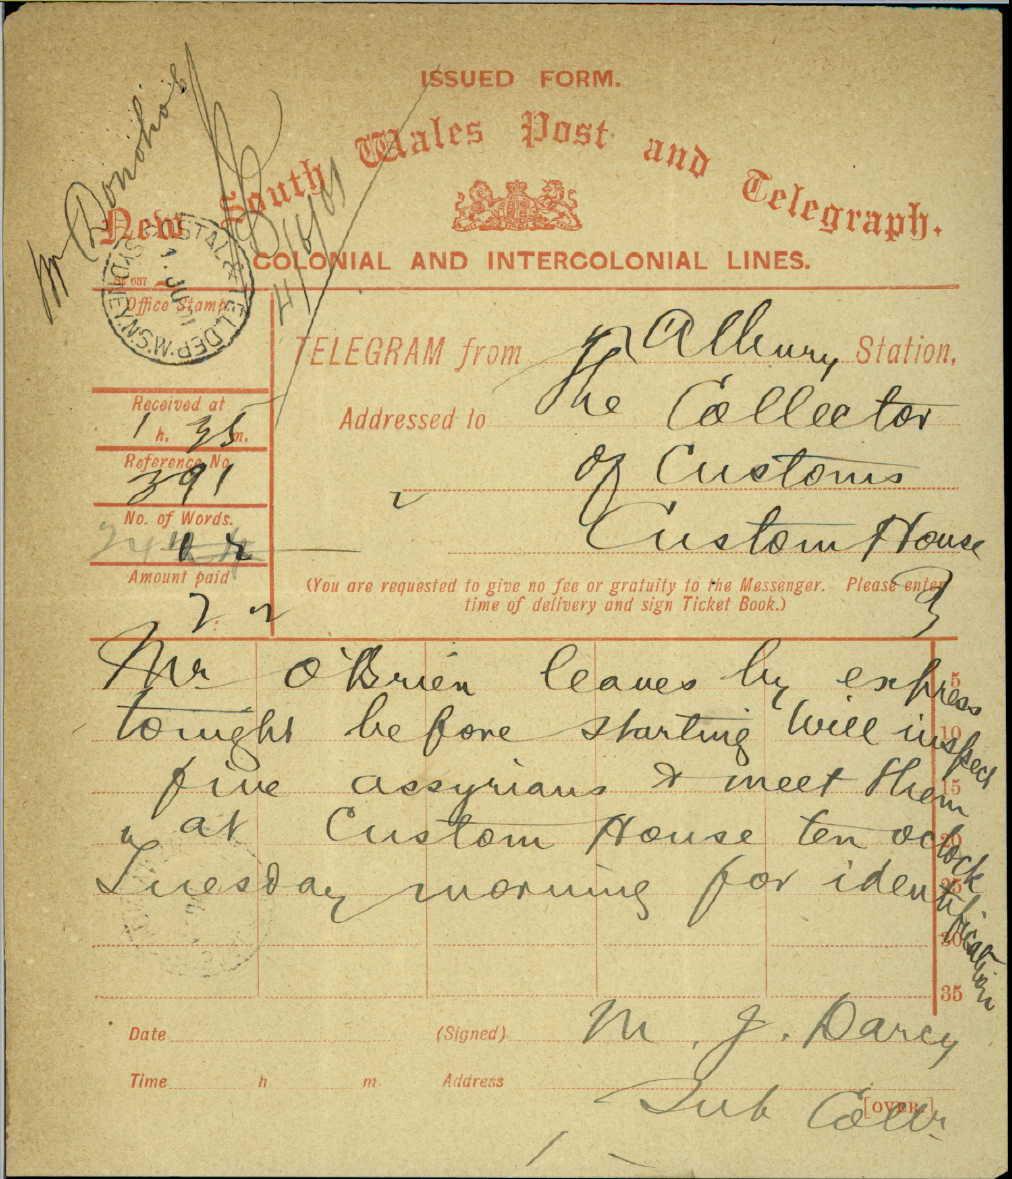 Mr Donohoe
4/6/01
ISSUED FORM.
New South Wales Post and Telegraph.
COLONIAL AND INTERCOLONIAL LINES.
POSTAL & TEL. DEP. N.S.W. SYDNEY
Office Stamp.
TELEGRAM from Albury Station,
Received at
1 h. 35 m.
Addressed to The Collector
Reference No.
391
of Customs
No. of Words.
Custom House
Amount paid
(You are requested to give no fee or gratuity to the Messenger. Please enter
time of delivery and sign Ticket Book.)
Mr O'Brien leaves by express
5
tonight before starting will inspect
10
five assyrians & meet them
15
at Custom House ten oclock
20
Tuesday morning for identification
25
30
35
Date (Signed) M. J. Darcy
Time h m. Address
Sub Collr.
[OVER.]